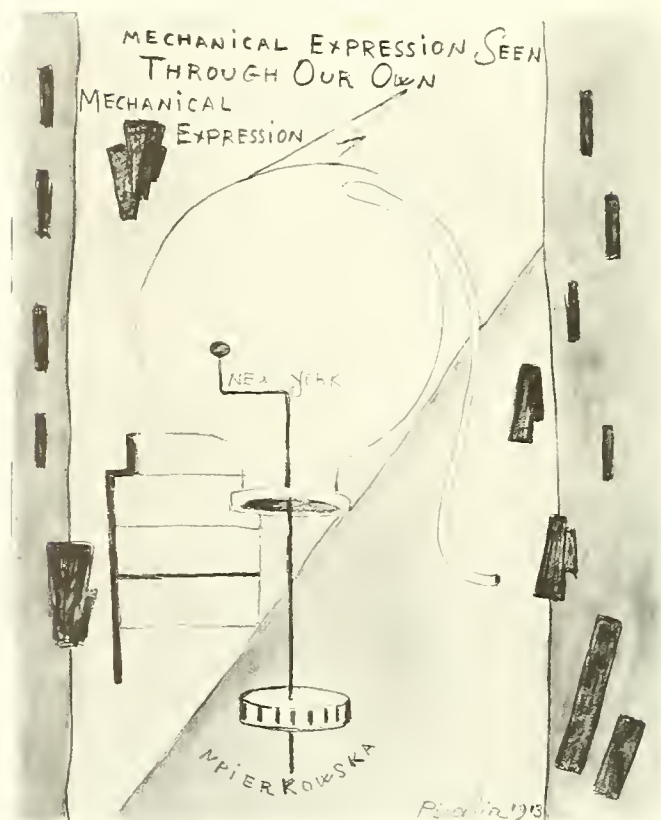 MECHANICAL EXPRESSION SEEN
THROUGH OUR OWN
MECHANICAL
EXPRESSION
NEW YORK
NPIERKOWSKA
Picabia 1913